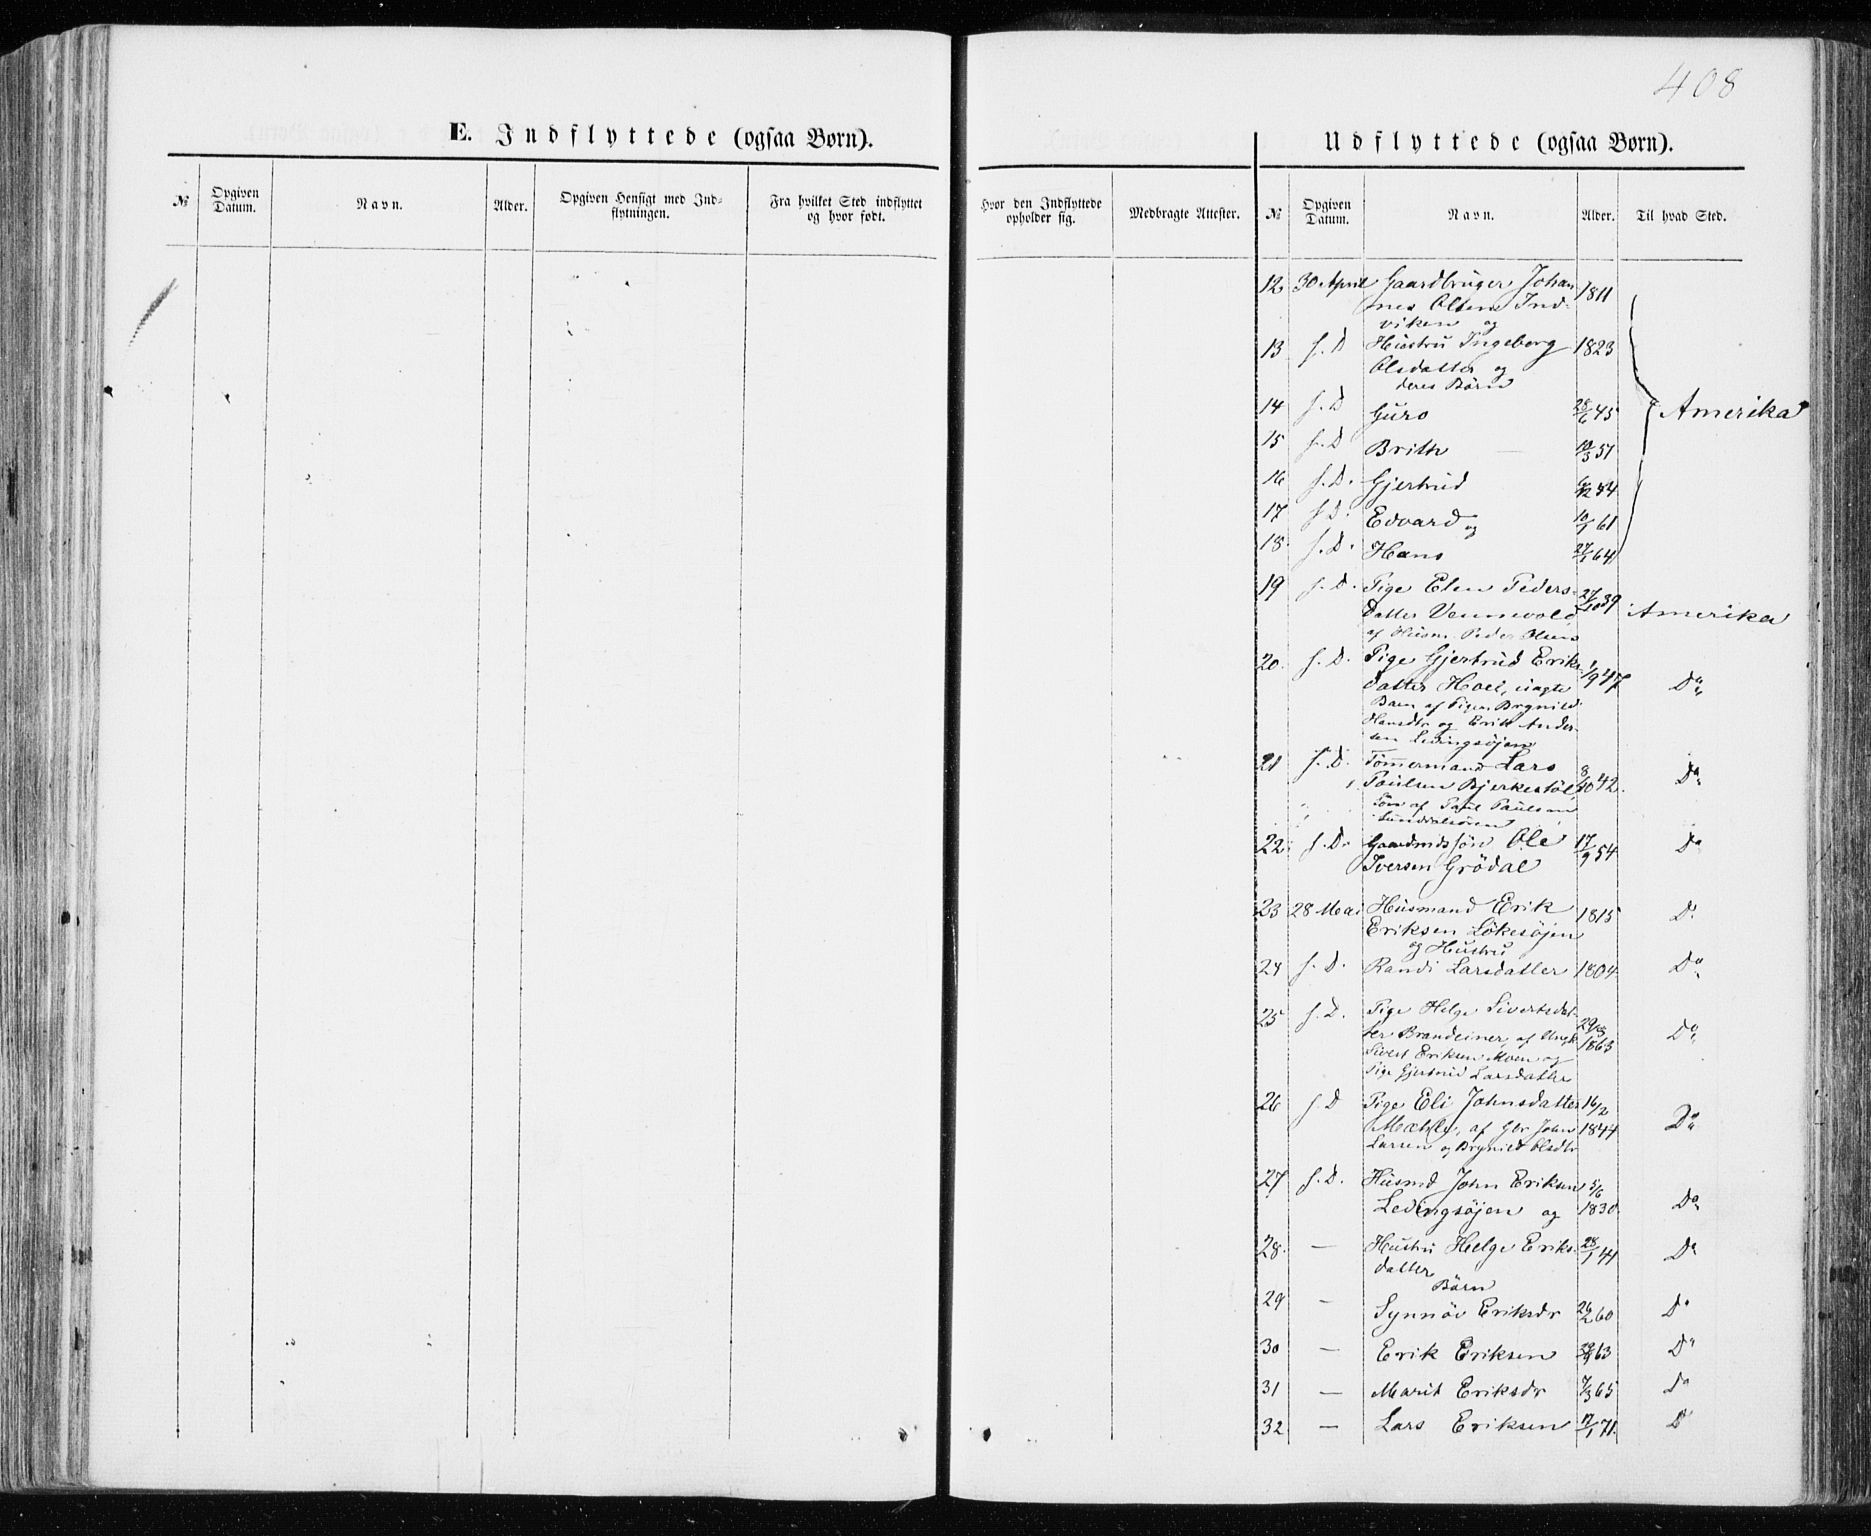 408
E. Indflyttede (ogsaa Børn).
Udflyttede (ogsaa Børn).
№ Opgiven Datum. Navn. Alder. Opgiven Hensigt med Ind-flytningen. Fra hvilket Sted indflyttet og hvor født. Hvor den Indflyttede opholder sig. Medbragte Attester. № Opgiven Datum. Navn. Alder. Til hvad Sted.
12 30 April Gaardbruger Johan 1811
nes Olsen Ind-
viken og
13 s. D Hustru Ingeborg 1823
Olsdatter og
deres Börn
14 s. D Guro 28/6 45 Amerika
15 s. D Brith 10/3 51
16 s. D. Gjertrud 54
17 s. D. Edvard og 10/1 61
18. s. D. Hans 27/1 64
19 s. D. Pige Elen Peders- 27/10 39
datter Vennevold Amerika
af Husm. Peder Olsen
20. s. D. Pige Gjertrud Eriks- 1/9 47
datter Hoel, uægte Do
Barn af Pigen Brynild
Hansdtr og Erik Ander-
sen Ledingsöjen
21 s. D. Tömmermand Lars 8/10 42.
Paulsen Bjerkestöl Do
Sön af Paul Paulsen
22. s. D. Gaardmdssön Ole 17/9 54 Do
Iversen Grödal
23 28 Mai Husmand Erik 1815 Do
Eriksen Lökesöjen
og Hustru
24 s. D. Randi Larsdatter 1804 Do
25 s. D. Pige Helge Sivertsdat-
ter Brandeiner, af 1863 Do
Sivert Eriksen Moen og
Pige Gjertrud Larsdatter
26 s. D Pige Eli Johnsdatter 16/2
Mæhle, af Gbr John 1844 Do
Larsen og Brynild Olsdtr
27 s. D. Husmd John Eriksen 5/6
Ledingsöjen og 1830. Do
28. — Hustru Helge Eriks- 28/1 41 Do
datter
Börn
29 — Synnöv Eriksdr 26/2 60 Do
30 — Erik Eriksen 63 Do
31 — Marit Eriksdr 7/3 65 Do
32 — Lars Eriksen 17/1 71. Do